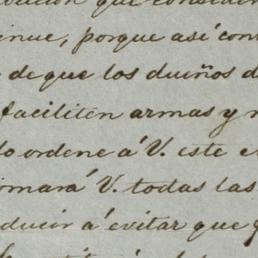 que consider
inue, porque así con
de que los dueños d
faciliten armas y
lo ordene á V. este
mará V. todas las
ducir á evitar que